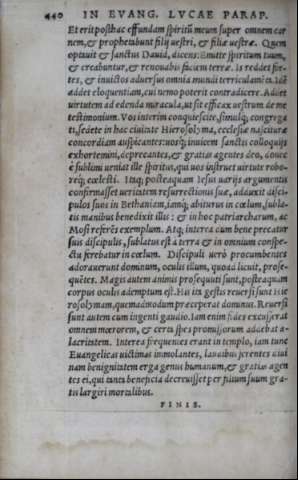 440 IN EVANG. LVCAE PARAP.
Et erit posthac effundam spiritũ meum super omnem car
nem, & prophetabunt filij uestri, & filiæ uestræ. Quem
optauit & sanctus Dauid, dicens: Emitte spiritum tuum,
& creabuntur, & renouabis faciem terræ. Is reddet for-
tes, & inuictos aduersus omnia mundi terriculamẽta. Idẽ
addet eloquentiam, cui nemo poterit contradicere. Addet
uirtutem ad edenda miracula, ut sit efficax uestrum de me
testimonium. Vos interim conquiescite, simulq; congrega
ti, sedete in hac ciuitate Hierosolyma, ecclesiæ nascituræ
concordiam auspicantes: uosq; inuicem sanctis colloquijs
exhortemini, deprecantes, & gratias agentes deo, donec
è sublimi ueniat ille spiritus, qui uos instruet uirtute robo-
req; cælesti. Itaq; posteaquam Iesus uarijs argumentis
confirmasset ueritatem resurrectionis suæ, adduxit disci-
pulos suos in Bethaniam, iamq; abiturus in cœlum, subla-
tis manibus benedixit illis: & in hoc patriarcharum, ac
Mosi referẽs exemplum. Atq; interea cum bene precatur
suis discipulis, sublatus est à terra & in omnium conspe-
ctu ferebatur in cœlum. Discipuli uerò procumbentes
adorauerunt dominum, oculis illum, quoad licuit, prose-
quẽtes. Magis autem animis prosequuti sunt, posteaquam
corpus oculis ademptum est. His ita gestis reuersi sunt Hie
rosolymam, quemadmodum præceperat dominus. Reuersi
sunt autem cum ingenti gaudio. Iam enim fides excusserat
omnem mœrorem, & certa spes promissorum addebat a-
lacritatem. Interea frequentes erant in templo, iam tunc
Euangelicas uictimas immolantes, laudibus ferentes diui
nam benignitatem erga genus humanum, & gratias agen
tes ei, qui tanta beneficia decreuisset per filium suum gra-
tis largiri mortalibus.
FINIS.